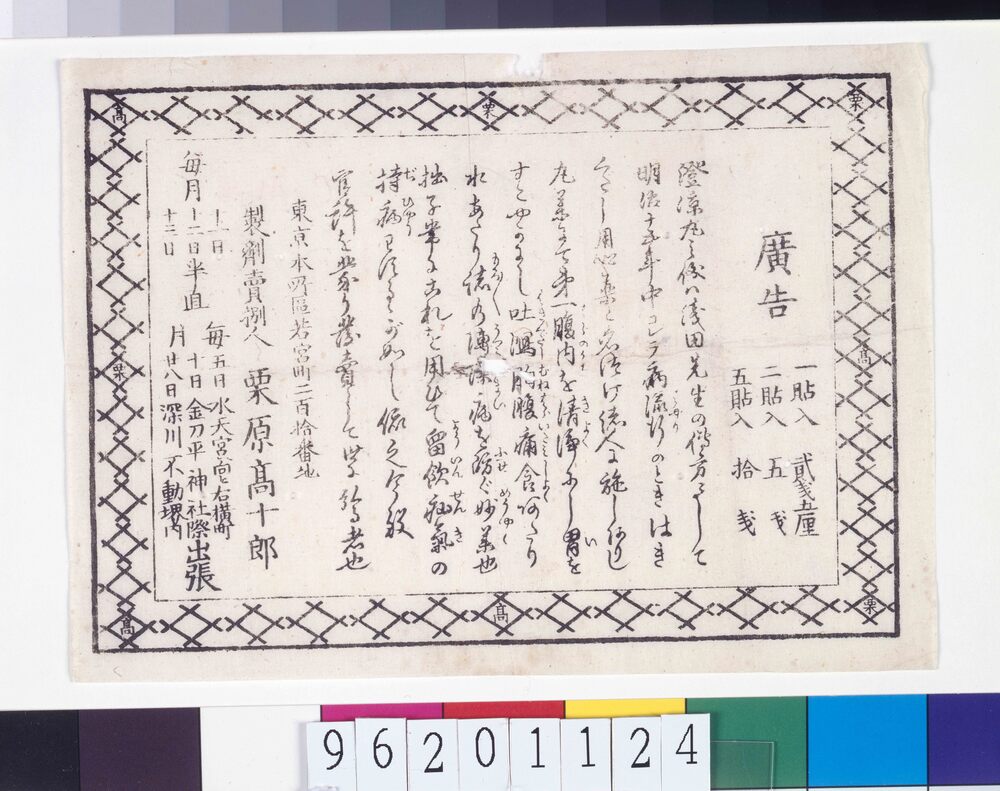 廣告
一貼入 貳戔五厘
二貼入 五戔
五貼入 拾戔
澄凉丸之儀ハ浅田先生の借方にして
明治十五年中コレラ病流行のときはき
くだし用心薬と名附け諸人に施しおりし
丸薬にて第一腹内を清浄にし胃を
すこやかにし吐瀉胸腹痛食あたり
水あたり諸の傳染病を防ぐ妙薬也
拙子常にこれを用ひて留飲疝氣の
持病
官許を蒙り發賣して
東京本所區若宮町二百拾番地
製劑賣捌人 栗原髙十郎
毎月 十一日 十二日 十三日 半直
毎月 五日 水天宮向と右横町
十日 金刀平神社際 出張
廿八日 深川不動堺内
髙
栗
栗
髙
栗
髙
髙
栗
96201124